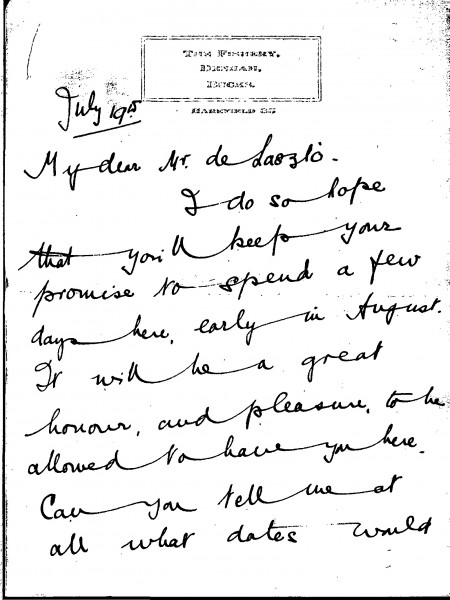 The Fishery,
Denham,
Bucks.
Harefield 85
July 19th
My dear Mr. de Laszló.
I do so hope
that you'll keep your
promise to spend a few
days here, early in August.
It will be a great
honour, and pleasure, to be
allowed to have you here.
Can you tell me at
all what dates would